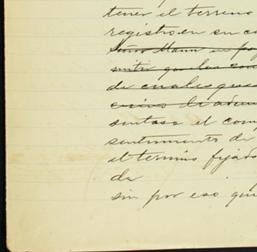 tener el terreno
registro en su ca
Señor Mann en po
de cualesque
sentase el com
sentimiento de
el termino fijad
de
sin por eso qui